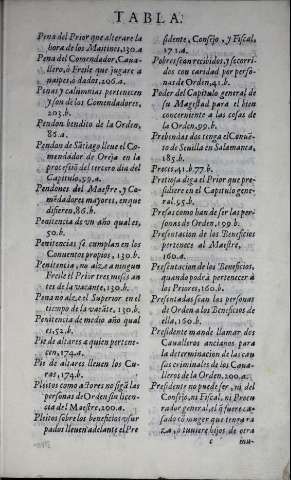 TABLA.
Pena del Prior que alterare la
hora de los Maitines, 130.a
Pena del Comendador, Caua
llero, ò Freile que jugare a
naipes ò dados, 106.a.
Penas y calumnias pertenecen
y son de los Comendadores,
203.b.
Pendon bendito de la Orden,
86.a.
Pendon de Sãtiago lleue el Co-
mendador de Oreja en la
processiõ del tercero dia del
Capitulo, 99.a.
Pendones del Maestre, y Co-
mẽdadores mayores, en que
difieren, 86.b.
Penitencia de vn año qual es,
50.b.
Penitẽcias se cumplan en los
Conuentos propios, 130.b.
Penitencia, no alze a ningun
Freile el Prior tres meses an
tes de la vacante, 130.b.
Pena no alze el Superior en el
tiempo de la vacãte, 130.b.
Penitencia de medio año qual
es, 52.b.
Pie de altares a quien pertene-
cen, 174.a.
Pie de altares lleuen los Cu-
ras, 174.b.
Pleitos como actores no sigã las
personas de Orden sin licen-
cia del Maestre, 100.a.
Pleitos sobre los beneficios vsur
pados lleuen adelante el Pre
sidente, Consejo, y Fiscal,
171.a.
Pobres sean recibidos, y socorri-
dos con caridad por perso-
nas de Orden, 41.b.
Poder del Capitulo general de
su Magestad para el bien
concerniente a las cosas de
la Orden, 99.b.
Prebendas dos tenga el Conuẽ-
to de Seuilla en Salamanca,
185.b.
Preces, 41.b.77.b.
Pretiosa diga el Prior que pre-
sidiere en el Capitulo gene-
ral. 95.b.
Presas como han de ser las per-
sonas de Orden, 199.b.
Presentacion de los Beneficios
pertenece al Maestre,
160.a.
Presentacion de los Beneficios,
quando podrà pertenecer a
los Priores, 160.b.
Presentadas sean las personas
de Orden a los Beneficios de
ella, 160.b.
Presidente mande llamar dos
Caualleros ancianos para
la determinacion de las cau
sas criminales de los Caua-
lleros de la Orden, 200.a.
Presidente no puede ser, ni del
Consejo, ni Fiscal, ni Procu
rador general, el q̃ fuere ca-
sado cõ muger que tenga ra
za, ò tuuiere hijos de otra
c
mu-